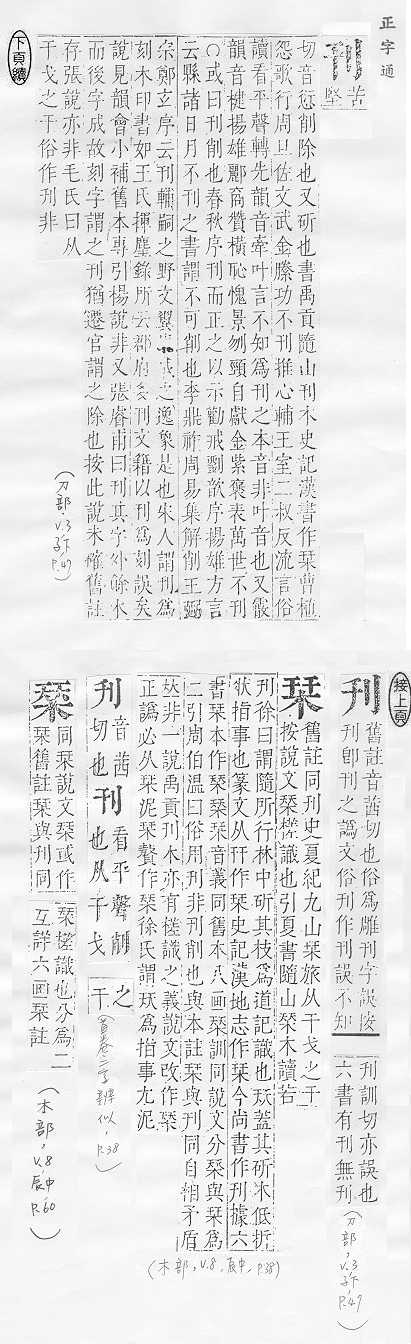 正字通
苦
堅
切音慳削除也又斫也書禹貢隨山刊木史記漢書作栞曹植
怨歌行周旦佐文武金縢功不刊推心輔王室二叔反流言俗
讀看平聲轉先韻音牽叶言不知為刊之本音非叶音也又霰
韻音楗揚雄酈商贊橫恥愧景刎頸自獻金紫襃表萬世不刊
○或曰刊削也春秋序刊而正之以示勸戒劉歆序揚雄方言
云縣諸日月不刊之書謂不可削也李鼎祚周易集解削王弼
宗鄭玄序云刊輔嗣之野文翼康成之逸象是也宋人謂刊為
刻木印書如王氏揮麈錄所云郡府多刊文籍以刊為刻誤矣
說見韻會小補舊本專引楊說非又張睿甫曰刊其字外餘木
而後字成故刻字謂之刊猶遷官謂之除也按此說未確舊註
存張說亦非毛氏曰从
干戈之干俗作刋非
(刀部,v.3 子下 P.47)
下頁續
接上頁
刋
舊註音茜切也俗為雕刊字誤按
刋卽刊之譌文俗刊作刋誤不知
刋訓切亦誤也
六書有刊無刋
(刀部,v.3 子下 P.47)
栞
舊註同刊史夏紀九山栞旅从干戈之干
按說文栞槎識也引夏書隨山栞木讀若
刊徐曰謂隨所行林中斫其枝為道記識也玨蓋其斫木低折
狀指事也篆文从幵作栞史記漢地志作栞今尚書作刊據六
書栞本作栞栞栞音義同舊本八画栞訓同說文分栞與栞為
二引周伯温曰俗用刊非刊削也與本註栞與刊同自相矛盾
玆非一說禹貢刊木亦有槎識之義說文改作栞
正譌必久栞泥栞聱作栞徐氏謂玨為指事尢泥
(木部,v.8,辰中,P.38)
刋 音茜
切也
刊 看平聲削
也从干戈
之
干
(首卷二字辨似,P.38)
栞
同栞說文栞或作
栞舊註栞與刊同
栞槎識也分為二
互詳六画栞註
(木部,v.8,辰中 P.60)